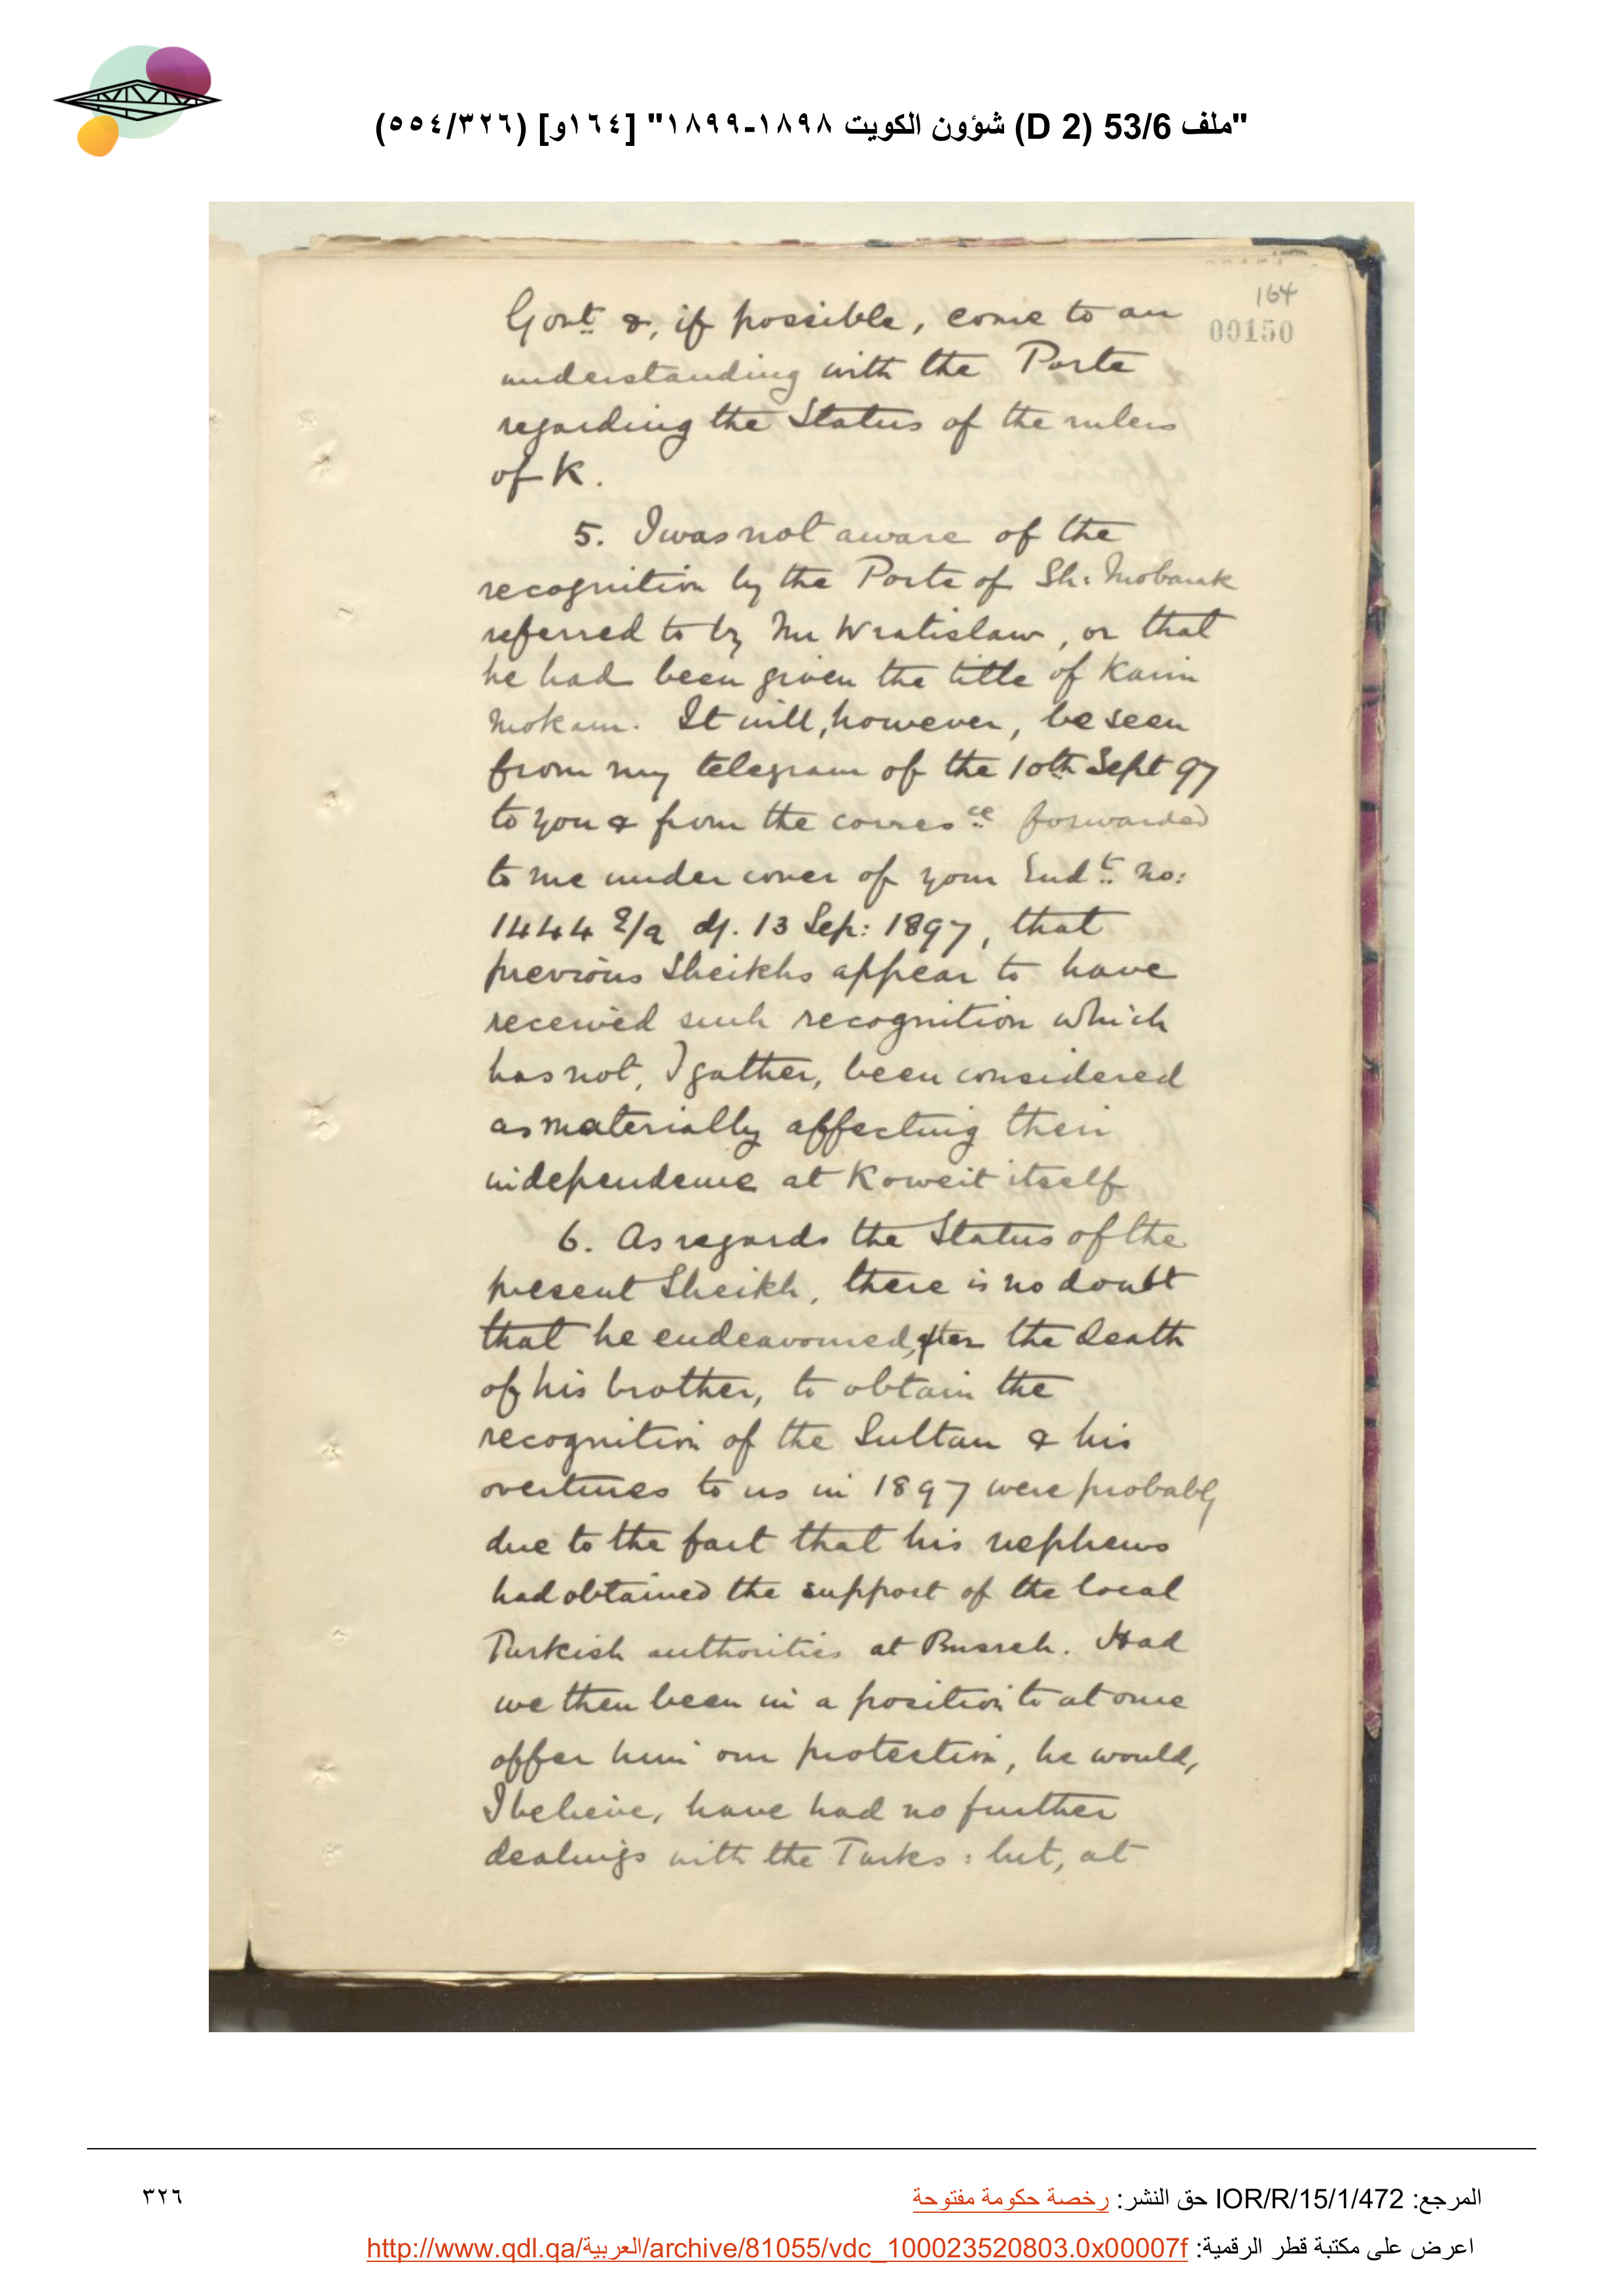 "ملف 53/6 (D 2) شؤون الكويت ١٨٩٨-١٨٩٩" [١٦٤و] (٥٥٤/٣٢٦)
164
00150
Govt. &, if possible, come to an
understanding with the Porte
regarding the Status of the rulers
of K.
5. I was not aware of the
recognition by the Porte of Sh: Mobarak
referred to by Mr Wratislaw, or that
he had been given the title of Kaim
Mokam. It will, however, be seen
from my telegram of the 10th Sept 97
to you & from the corresce forwarded
to me under cover of your Endt. No:
1444 E/a d/. 13 Sep: 1897, that
previous Sheikhs appear to have
received such recognition which
has not, I gather, been considered
as materially affecting their
independence at Koweit itself
6. As regards the Status of the
present Sheikh, there is no doubt
that he endeavoured, after the death
of his brother, to obtain the
recognition of the Sultan & his
overtures to us in 1897 were probably
due to the fact that his nephews
had obtained the support of the local
Turkish authorities at Busreh. Had
we then been in a position to at once
offer him our protection, he would,
I believe, have had no further
dealings with the Turks: but, at
المرجع: IOR/R/15/1/472 حق النشر: رخصة حكومة مفتوحة
٣٢٦
اعرض على مكتبة قطر الرقمية: http://www.qdl.qa/العربية/archive/81055/vdc_100023520803.0x00007f